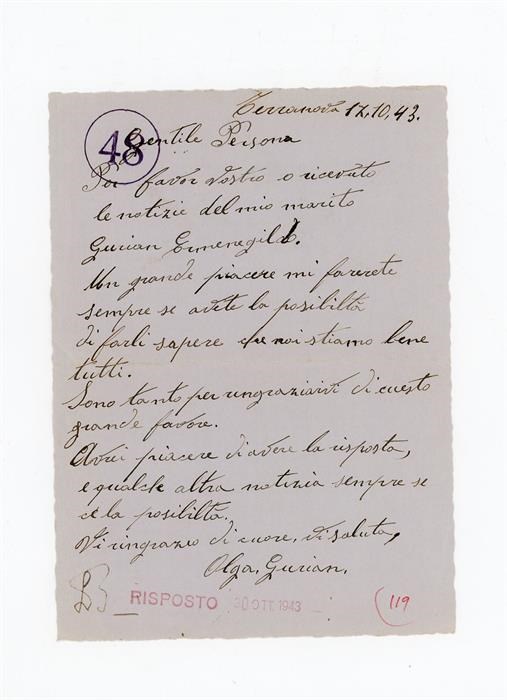 Terranova 17.10.43.
48
Gentile Persona
Per favor vostro o ricevuto
le notizie del mio marito
Gurian Ermenegildo.
Un grande piacere mi farete
sempre se avete la posibiltà
di farli sapere che noi stiamo bene
tutti.
Sono tanto per ringraziarvi di cuesto
grande favore.
Avrei piacere di avere la risposta,
e qualche altra notizia sempre se
ce la posibiltà.
Vi ringrazio di cuore, di saluta,
Olga, Gurian.
RISPOSTO 30 OTT. 1943
119